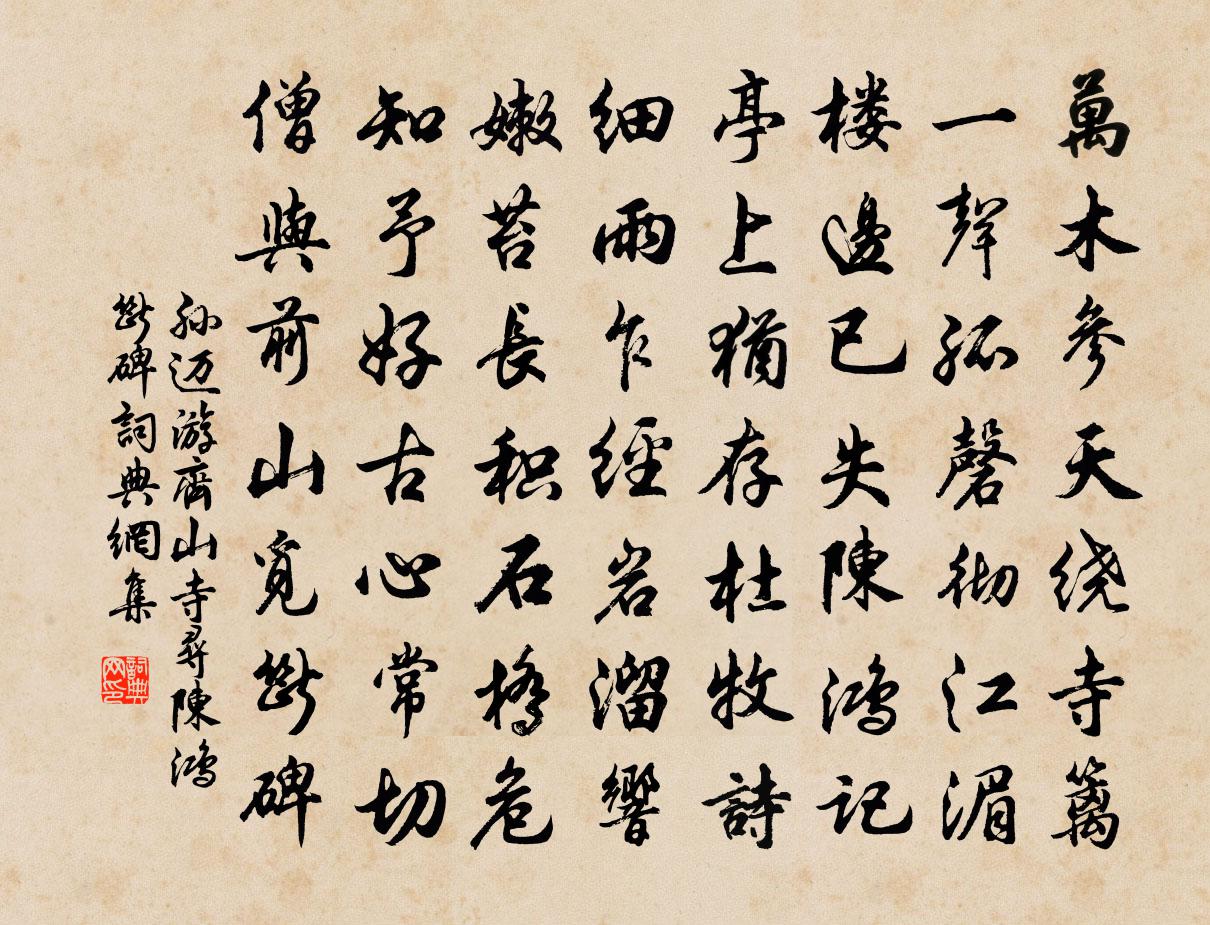 萬木參天绕寺篱
一聲孤磬彻江湄
楼邊已失陳鴻记
亭上猶存杜牧詩
细雨乍經岩溜響
嫩苔長积石橋危
知予好古心常切
僧與前山覓斷碑
孙迈游齊山寺尋陳鴻
斷碑詞典網集
詞典网印